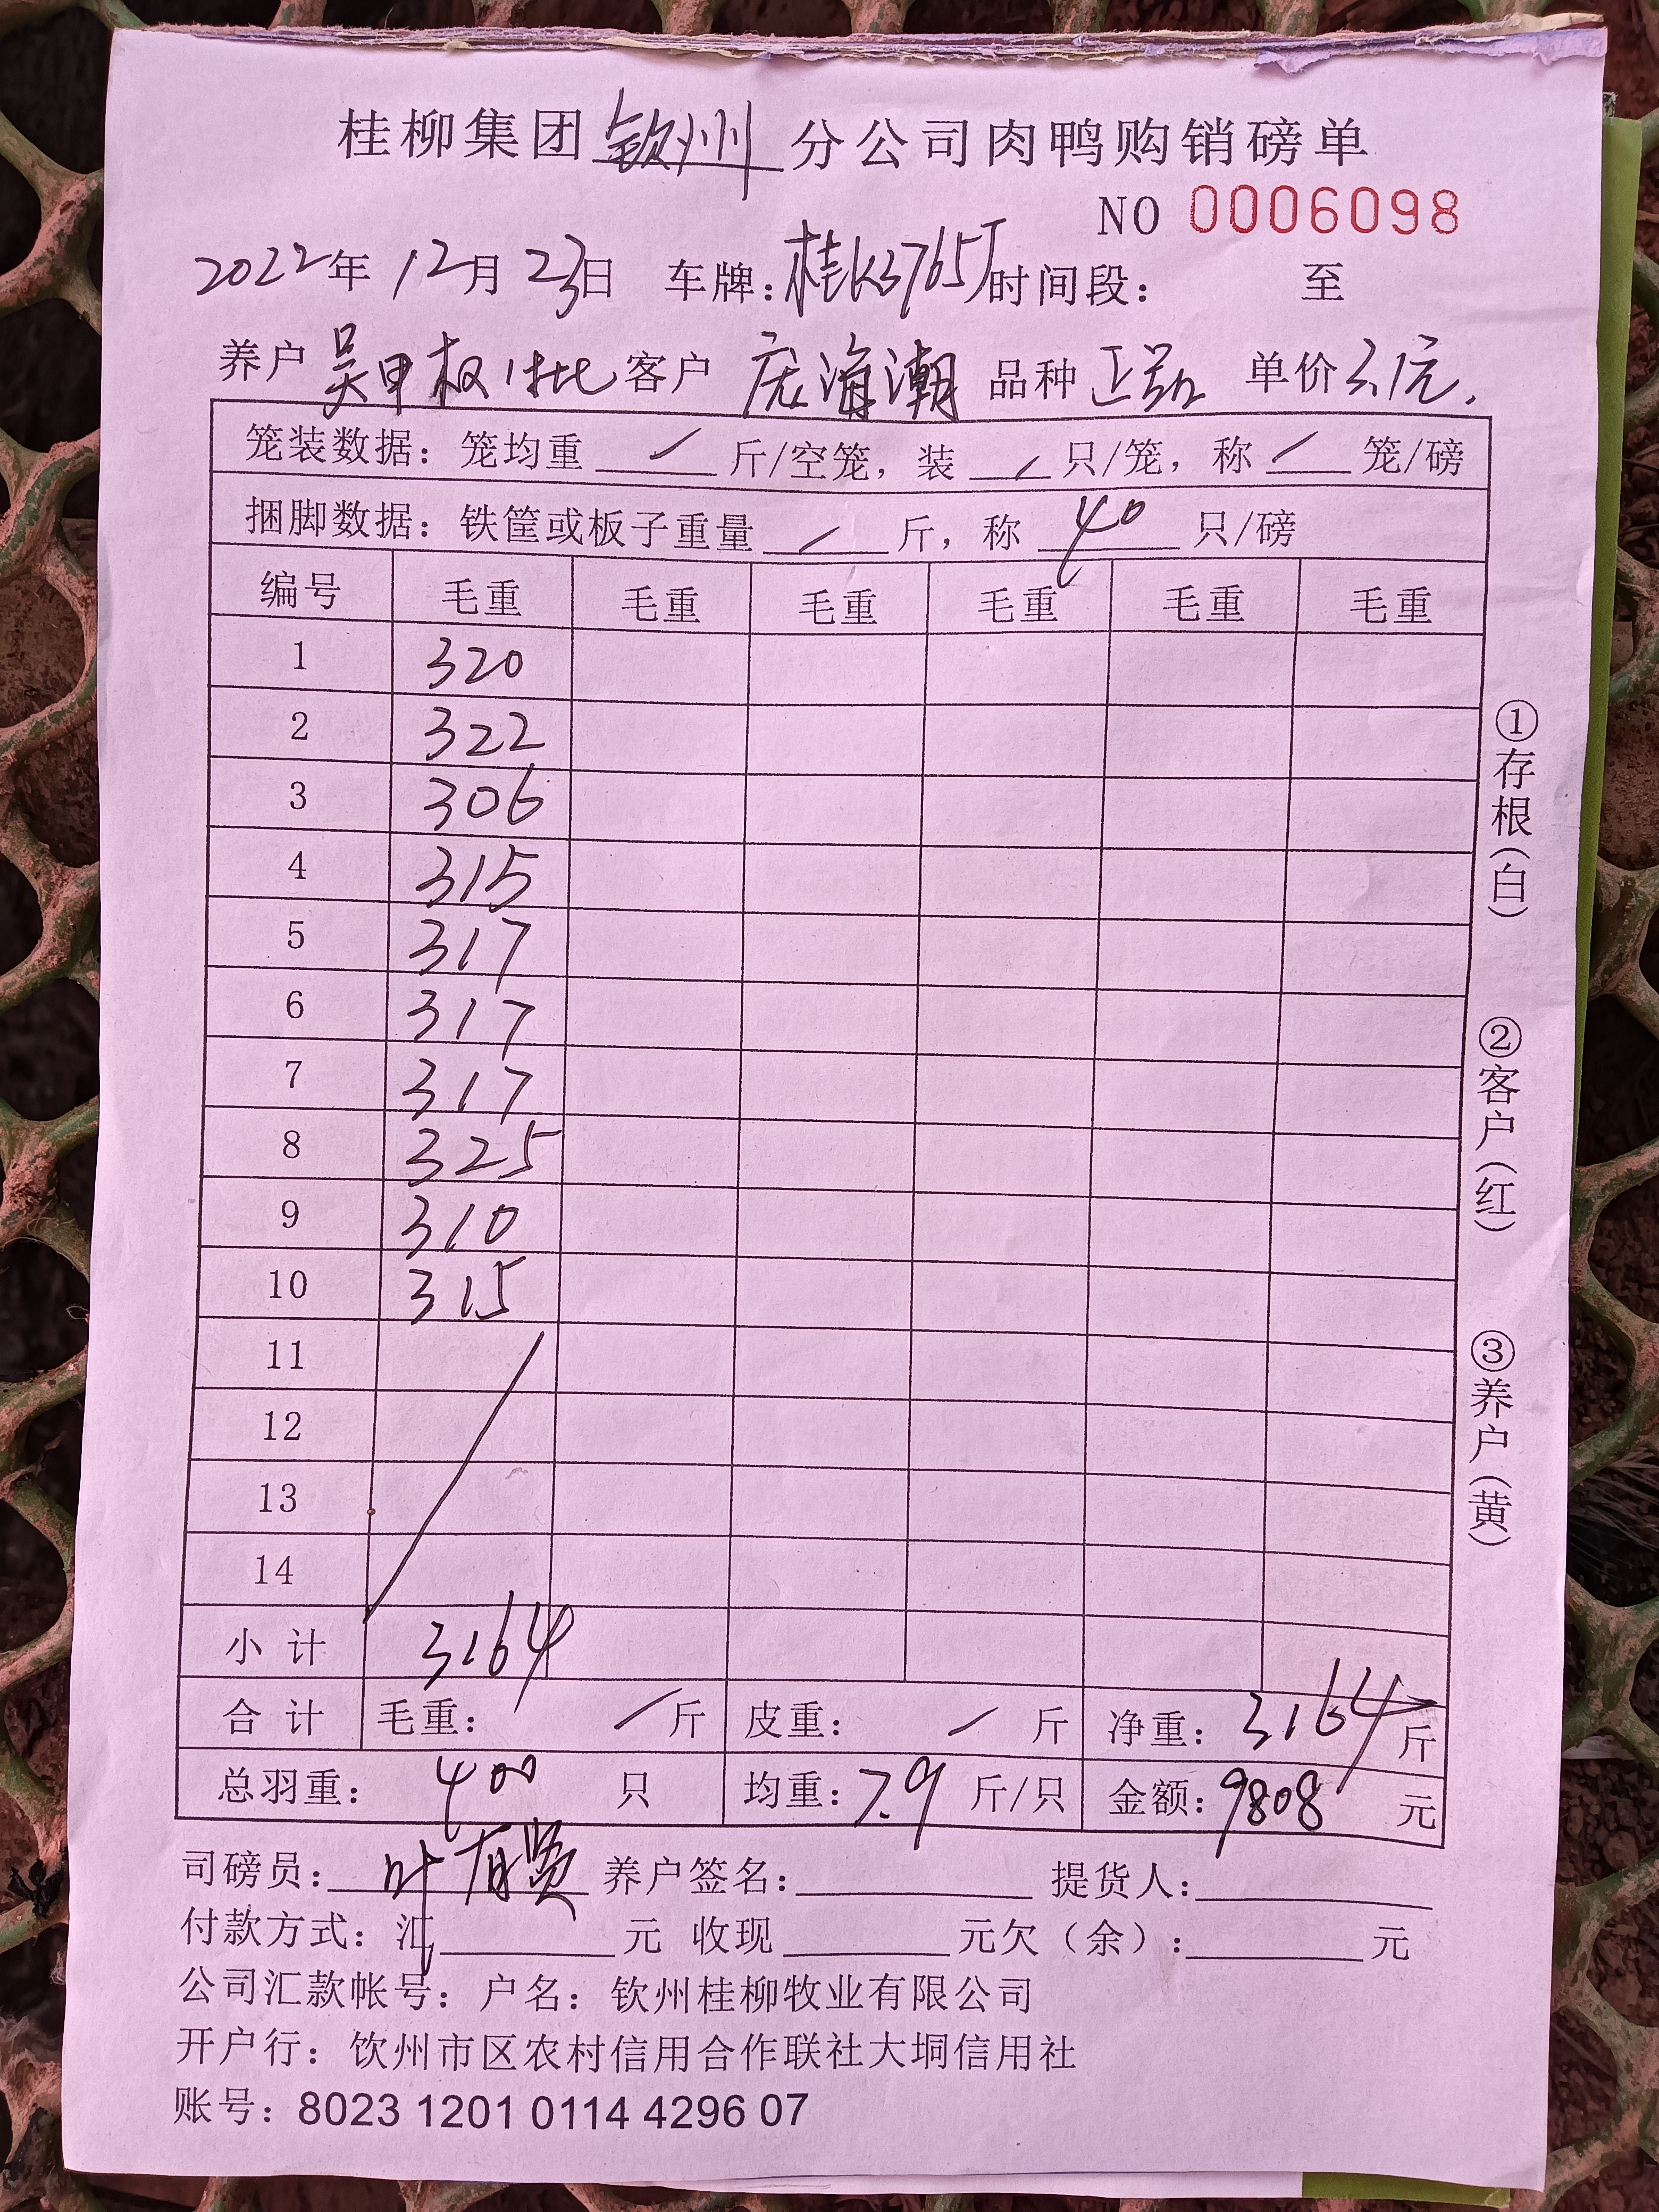 桂柳集团钦州分公司肉鸭购销磅单
NO 0006098
2022年12月23日 车牌:桂K3765J时间段: 至
养户 吴甲权1批 客户 庞海潮 品种 正品 单价3.1元.
笼装数据:笼均重 / 斤/空笼,装 / 只/笼,称 / 笼/磅
捆脚数据:铁筐或板子重量 / 斤,称 40 只/磅
编号 毛重 毛重 毛重 毛重 毛重 毛重
1 320
2 322
3 306
4 315
5 317
6 317
7 317
8 325
9 310
10 315
11
12
13
14
小计 3164
合计 毛重: / 斤 皮重: / 斤 净重:3164斤
总羽重: 400 只 均重:7.9 斤/只 金额:9808 元
司磅员:叶有贤 养户签名: 提货人:
付款方式:汇 元 收现 元欠(余): 元
公司汇款帐号:户名:钦州桂柳牧业有限公司
开户行:钦州市区农村信用合作联社大垌信用社
账号:8023 1201 0114 4296 07
①存根(白)
②客户(红)
③养户(黄)